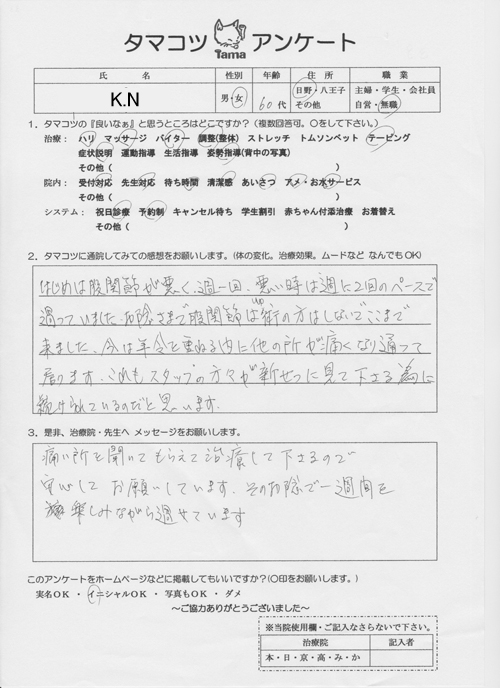 タマコツ Tama アンケート
氏 名 性別 年齢 住 所 職 業
K.N 男・女 60代 日野・八王子 その他 主婦・学生・会社員 自営・無職
1．タマコツの『良いなぁ』と思うところはどこですか？（複数回答可。〇をして下さい。）
治療： ハリ マッサージ バイター 調整(整体) ストレッチ トムソンベット テーピング
症状説明 運動指導 生活指導 姿勢指導(背中の写真)
その他（ ）
院内： 受付対応 先生対応 待ち時間 清潔感 あいさつ アメ・お水サービス
その他（ ）
システム： 祝日診療 予約制 キャンセル待ち 学生割引 赤ちゃん付添治療 お着替え
その他（ ）
2．タマコツに通院してみての感想をお願いします。(体の変化。治療効果。ムードなど なんでもOK)
はじめは股関節が悪く、週一回、悪い時は週に2回のペースで
通っていました。お陰さまで股関節は術の方はしないでここまで
来ました、今は年令を重ねる内に他の所が痛くなり通って
居ります。これもスタップの方々が新せつに見て下さる為に
続けられているのだと思います。
3．是非、治療院・先生へ メッセージをお願いします。
痛い所を聞いてもらえて治療して下さるので
安心して お願いしています。その お陰で一週間を
楽しみながら過せています
このアンケートをホームページなどに掲載してもいいですか？(〇印をお願いします。)
実名OK ・ イニシャルOK ・ 写真もOK ・ ダメ
～ご協力ありがとうございました～
※当院使用欄・ご記入なさらないで下さい。
治療院 記入者
本・日・京・高・み・か